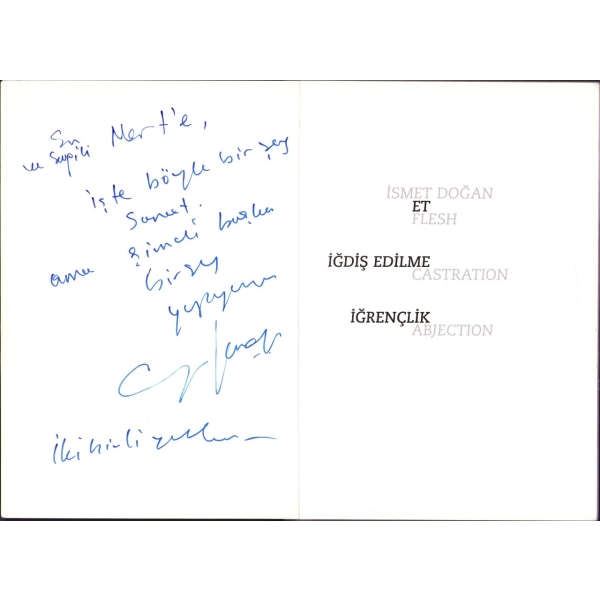 En
ve sevgili Mert'e,
işte böyle bir şey
Sanat.
ama şimdi başka
birşey
yapıyorum
İkibinli yıllar
İSMET DOĞAN
ET
FLESH
İĞDİŞ EDİLME
CASTRATION
İĞRENÇLİK
ABJECTION